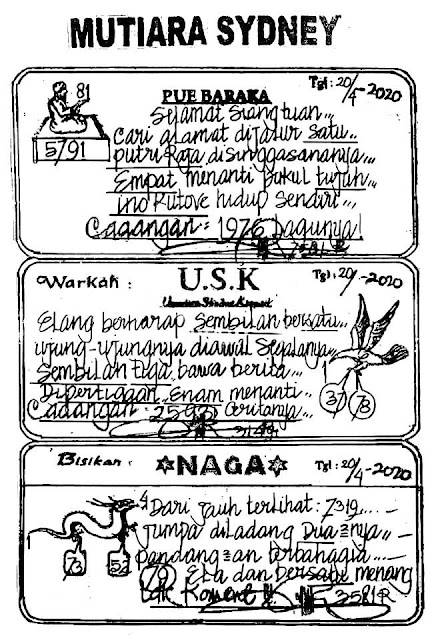 MUTIARA SYDNEY
Tgl: 20/4-2020
81
5791
PUE BARAKA
Selamat siang tuan...
Cari alamat dijalur satu...
putri Raja disinggasananya...
Empat menanti pukul tujuh...
ino Kutove hidup sendiri...
Cadangan: 1976 Lagunya!
Warkah:
U.S.K
Tgl: 20/4-2020
Elang berharap sembilan bersatu...
ujung-ujungnya diawal segalanya...
Sembilan tiga bawa berita...
Dipertigaan Enam menanti...
Cadangan: 2593 Ceritanya...
37
78
Bisikan:
NAGA
Tgl: 20/4-2020
Dari jauh terlihat: 7319...
Jumpa diladang Dua nya
pandangan terbahagia
73
52
79 Eka dan Dersage menang
3581R